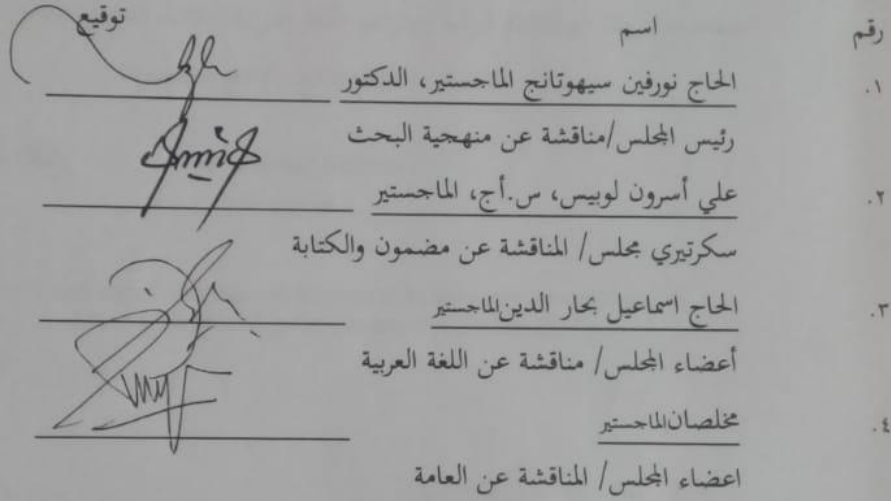 رقم اسم توقيع
١. الحاج نورفين سيهوتانج الماجستير، الدكتور
رئيس المجلس/مناقشة عن منهجية البحث
٢. علي أسرون لوبيس، س.أج، الماجستير
سكرتيري مجلس/ المناقشة عن مضمون والكتابة
٣. الحاج اسماعيل بحار الدين الماجستير
أعضاء المجلس/ مناقشة عن اللغة العربية
٤. مخلصان الماجستير
اعضاء المجلس/ المناقشة عن العامة